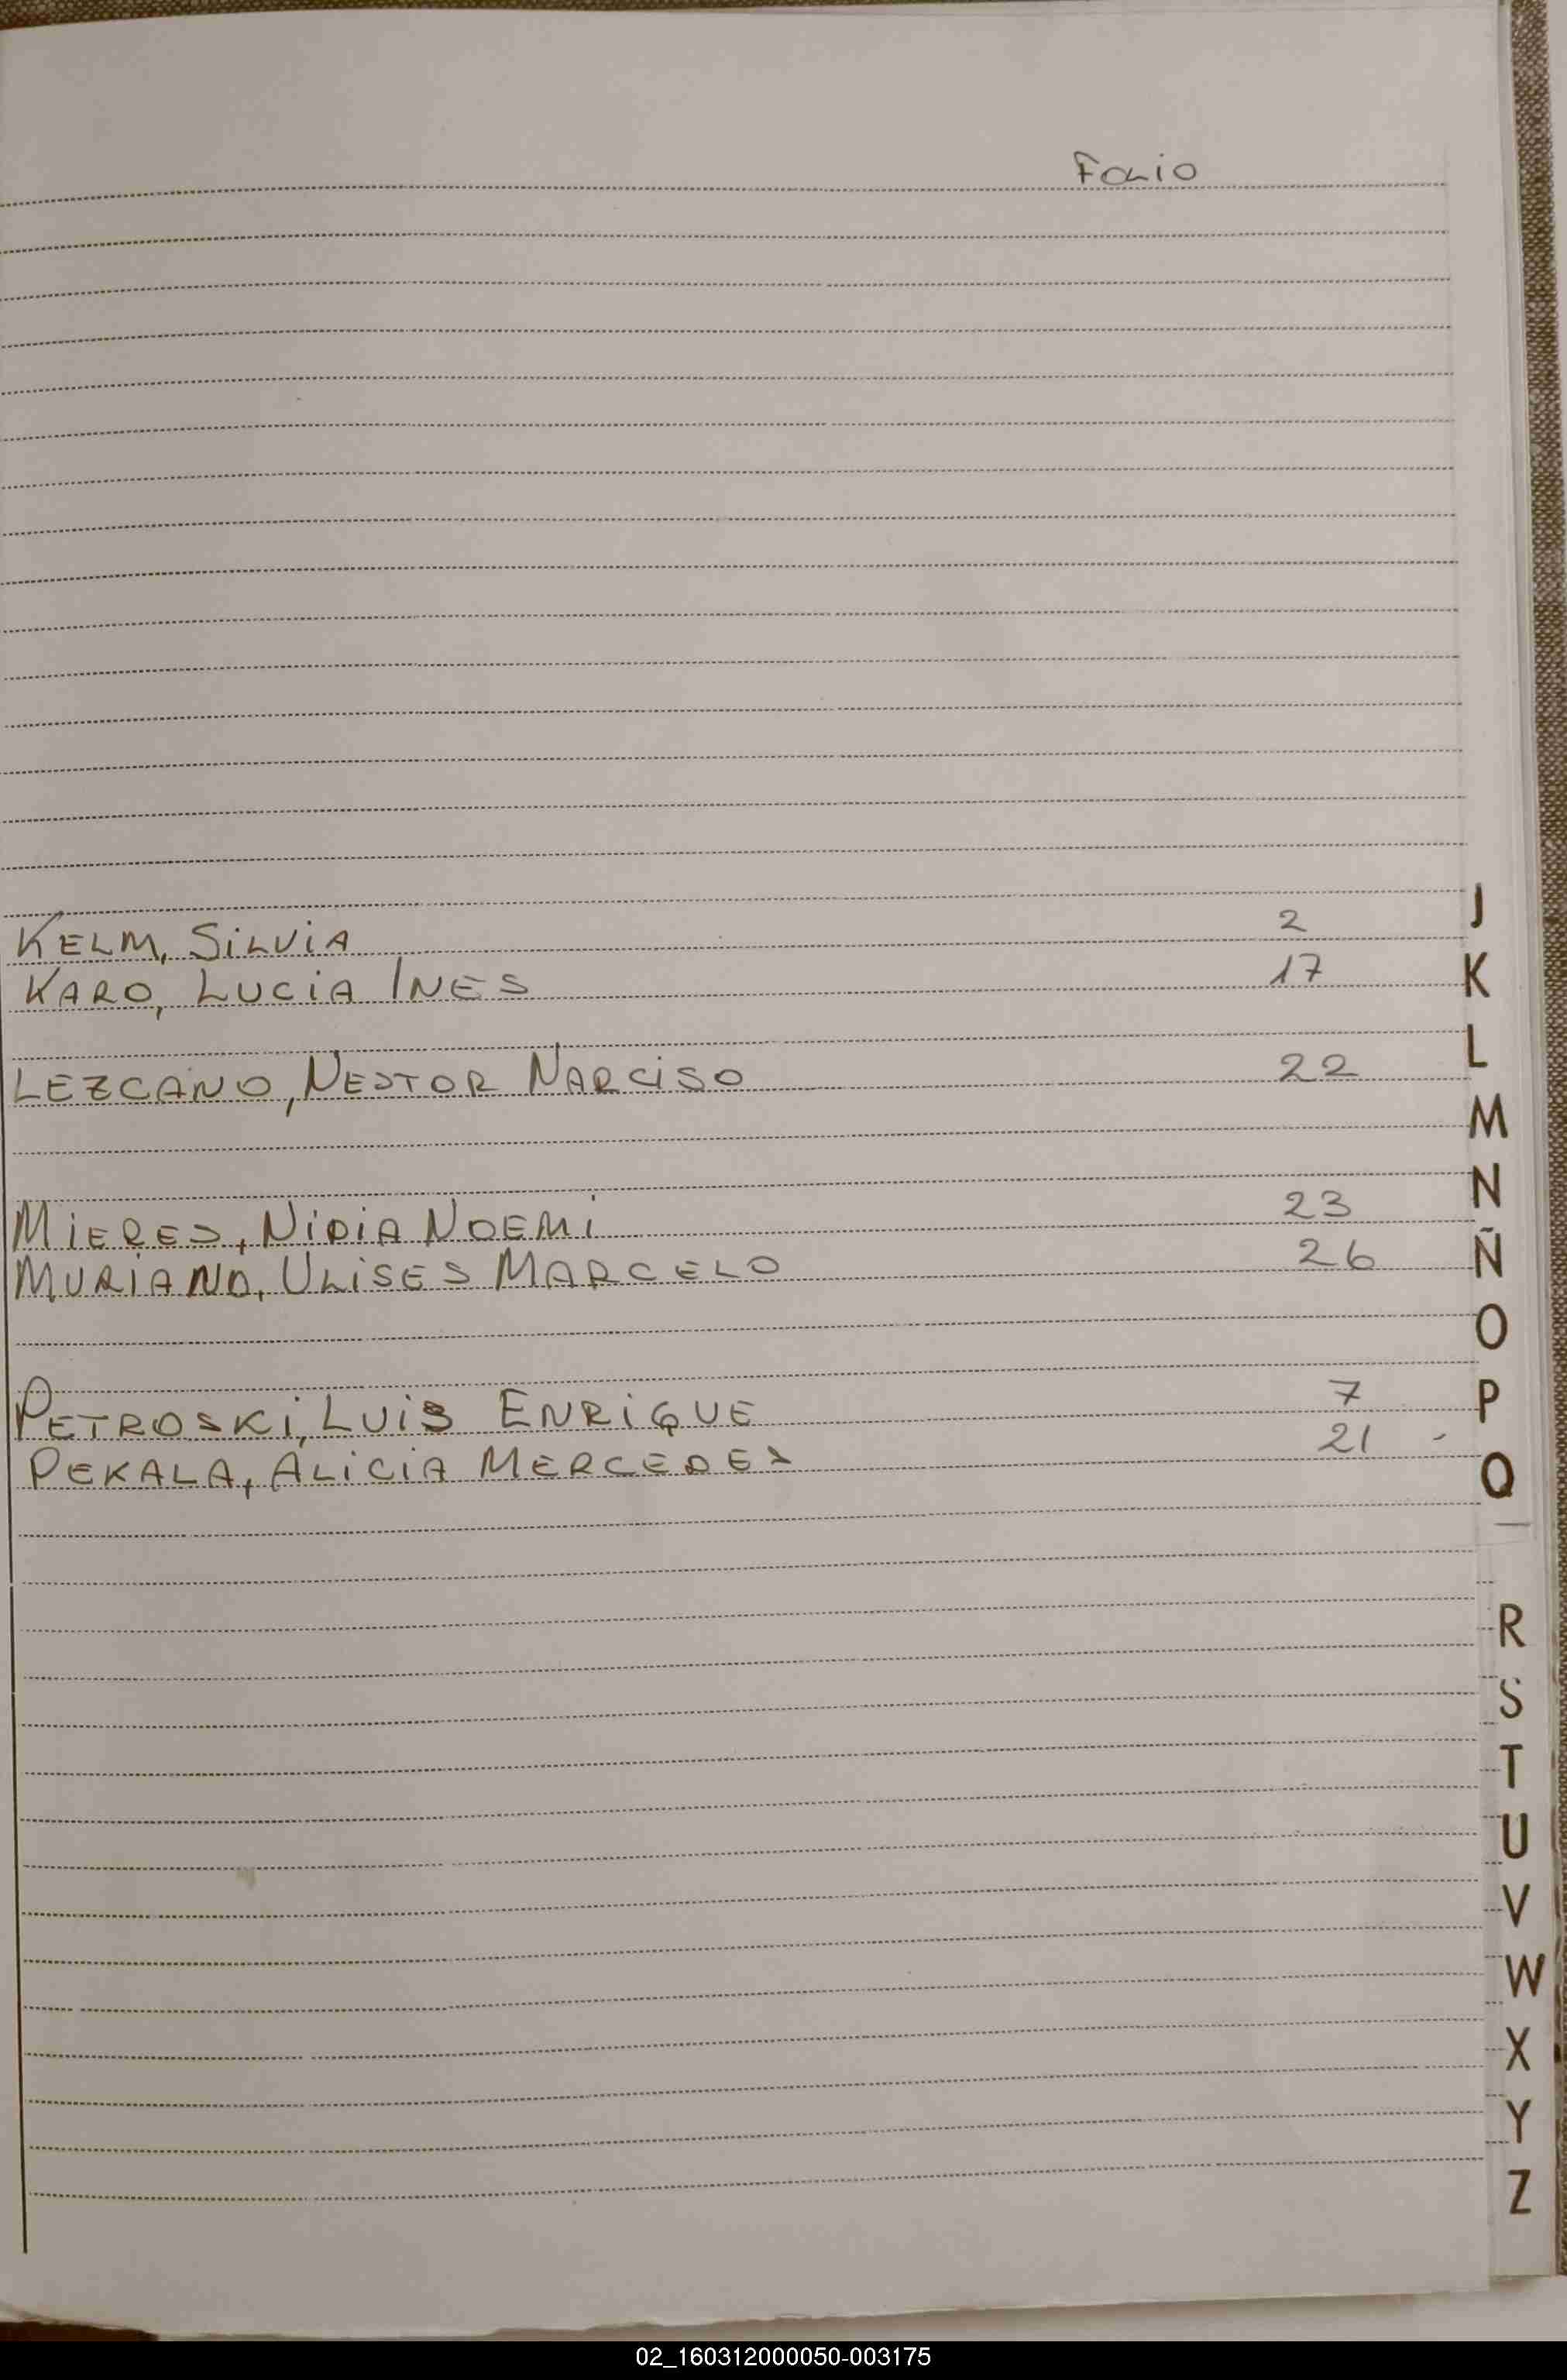 Folio
KELM, SILVIA 2
J
KARO, LUCIA INES 17
K
L
LEZCANO, NESTOR NARCISO 22
M
N
MIERES, NIDIA NOEMI 23
MURIANO, ULISES MARCELO 26
Ñ
O
PETROSKI, LUIS ENRIQUE 7
P
PEKALA, ALICIA MERCEDES 21
Q
R
S
T
U
V
W
X
Y
Z
02_160312000050-003175